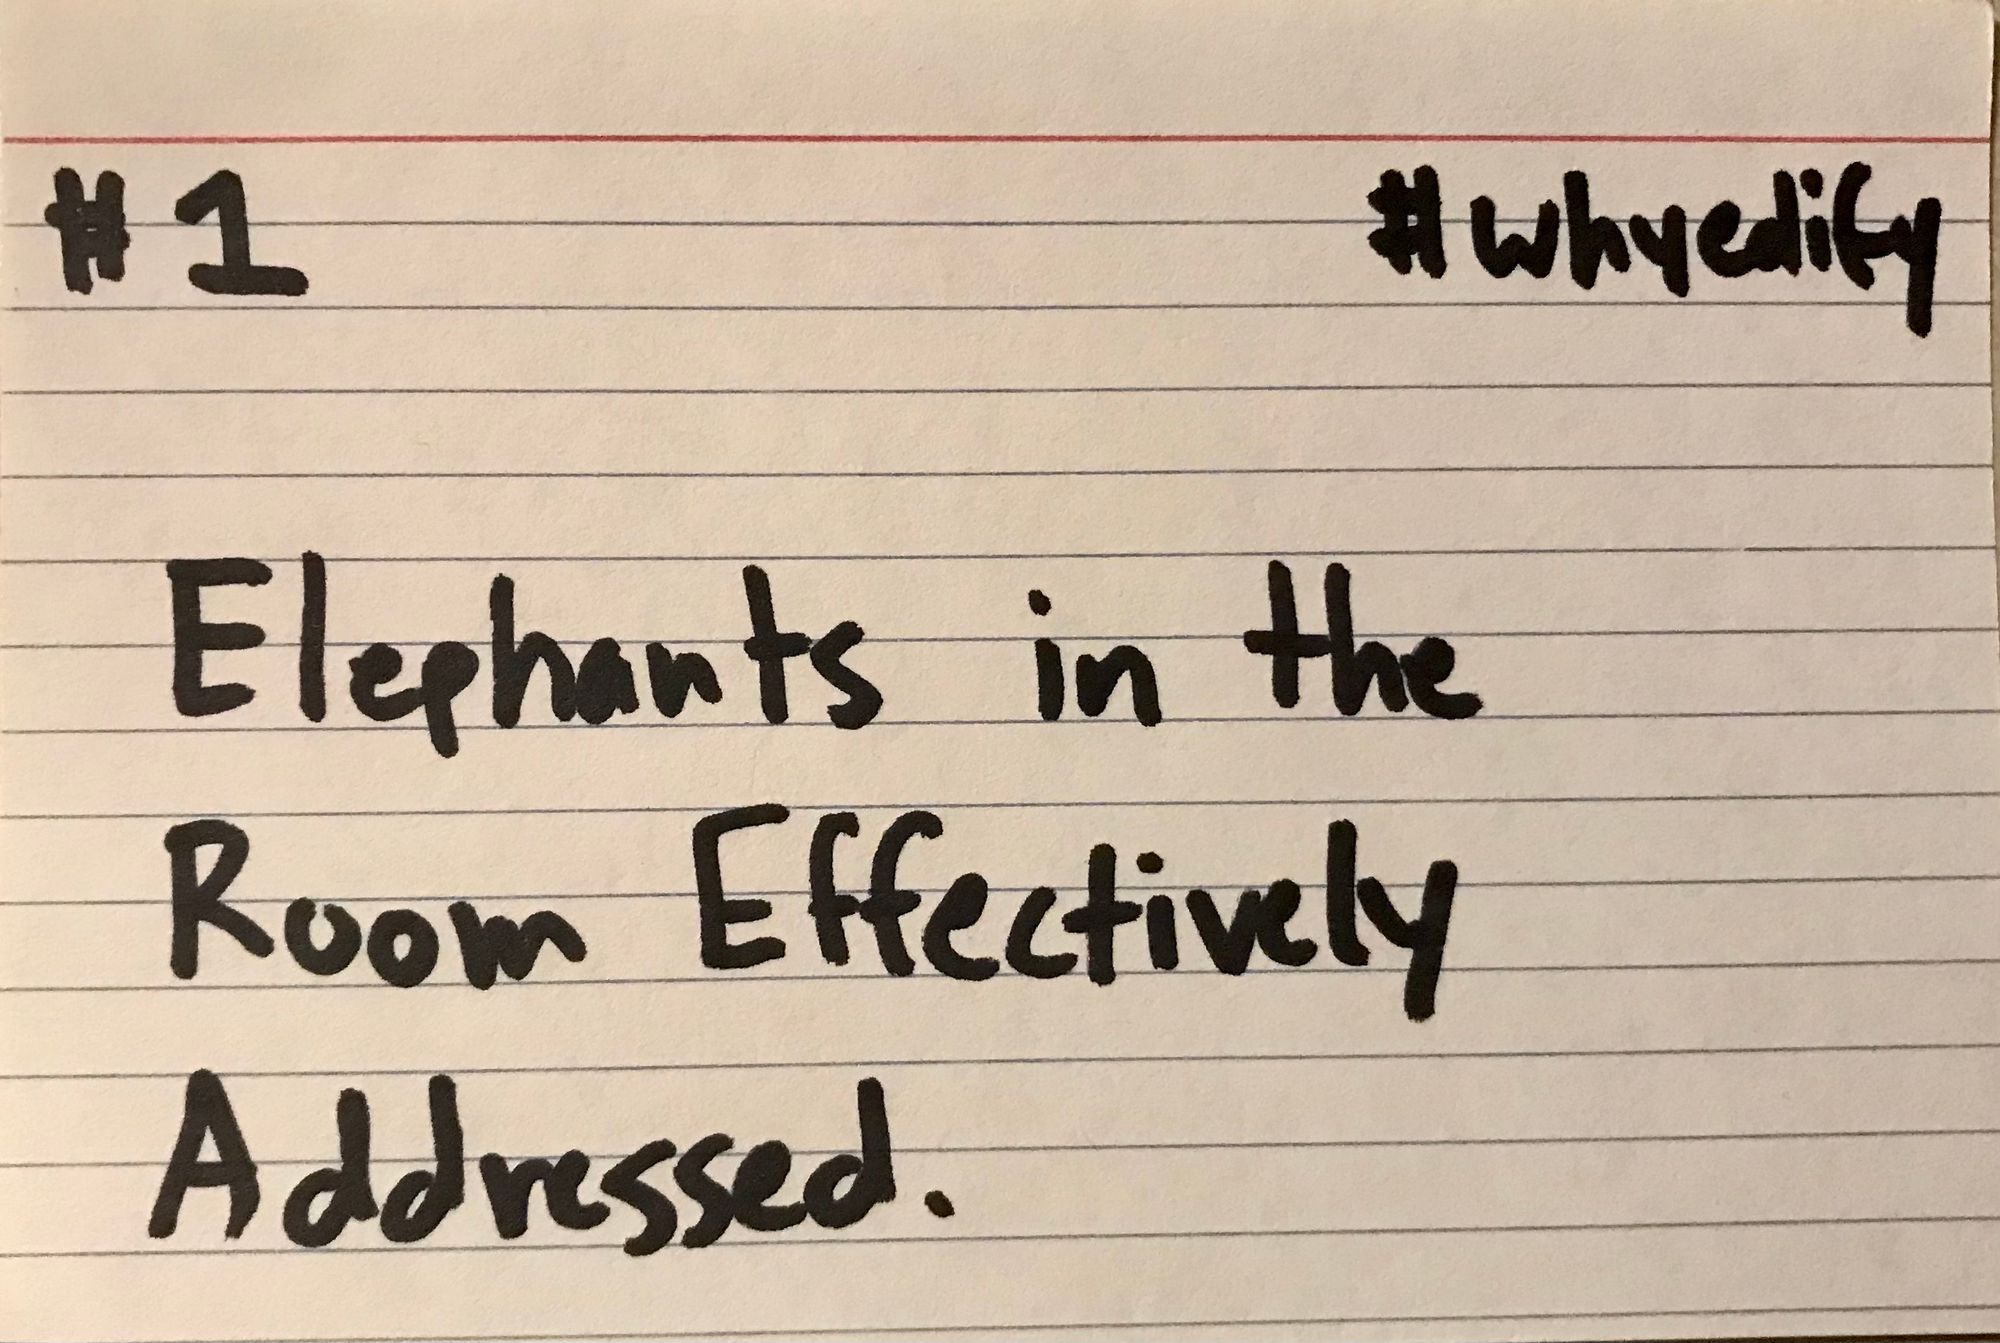 #1 #whyedify
Elephants in the
Room Effectively
Addressed.